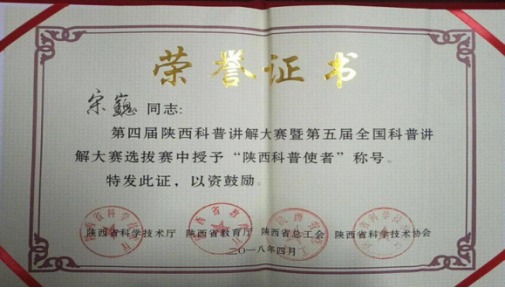 荣誉证书
宋巍 同志:
第四届陕西科普讲解大赛暨第五届全国科普讲
解大赛选拔赛中授予“陕西科普使者”称号。
特发此证，以资鼓励。
陕西省科学技术厅 陕西省教育厅 陕西省总工会 陕西省科学技术协会
二〇一八年四月